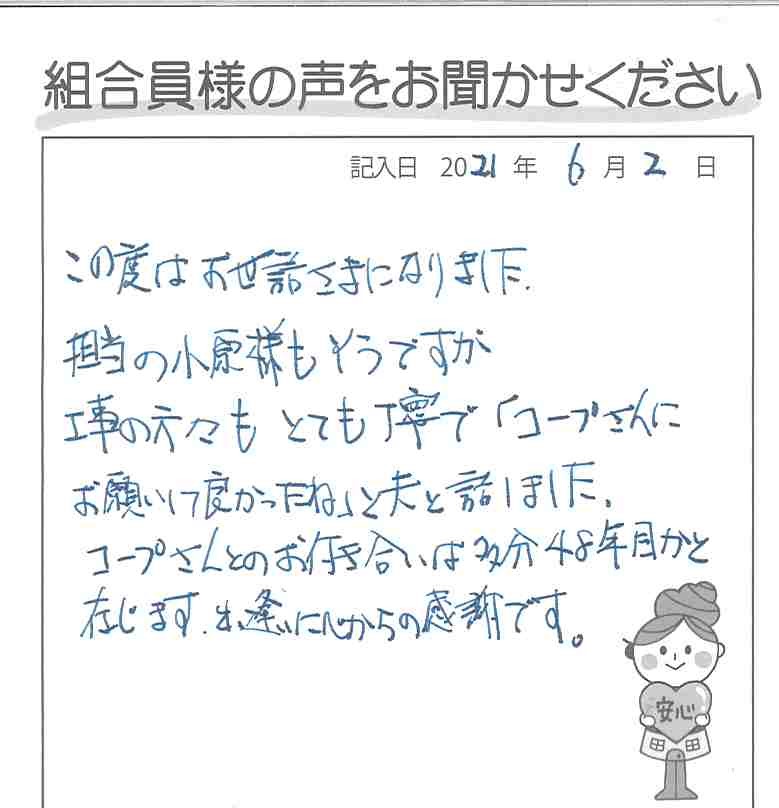 組合員様の声をお聞かせください
記入日 2021年 6月2日
この度はお世話さまになりました.
担当の小原様もそうですが
工事の方々も とても丁寧で「コープさんに
お願いして良かったね」と夫と話しました.
コープさんとのお付き合いは多分48年目かと
存じます. 出逢いに心からの感謝です。
安心